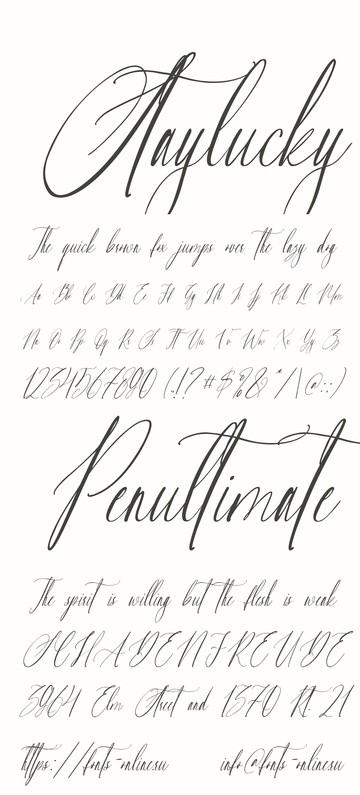 Staylucky
The quick brown fox jumps over the lazy dog
Aa Bb Cc Dd Ee Ff Gg Hh Ii Jj Kk Ll Mm
Nn Oo Pp Qq Rr Ss Tt Uu Vv Ww Xx Yy Zz
1234567890 (.!? #$%& * / \ @:;)
Penultimate
The spirit is willing but the flesh is weak
SCHADENFREUDE
3964 Elm Street and 1370 Rt. 21
https://fonts-online.su info@fonts-online.su